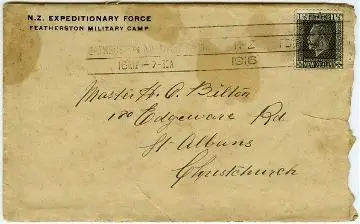 N.Z. EXPEDITIONARY FORCE
FEATHERSTON MILITARY CAMP.
N.Z.
1916
Master H. P. Bilton
180 Edgeware Rd
St. Albans
Christchurch